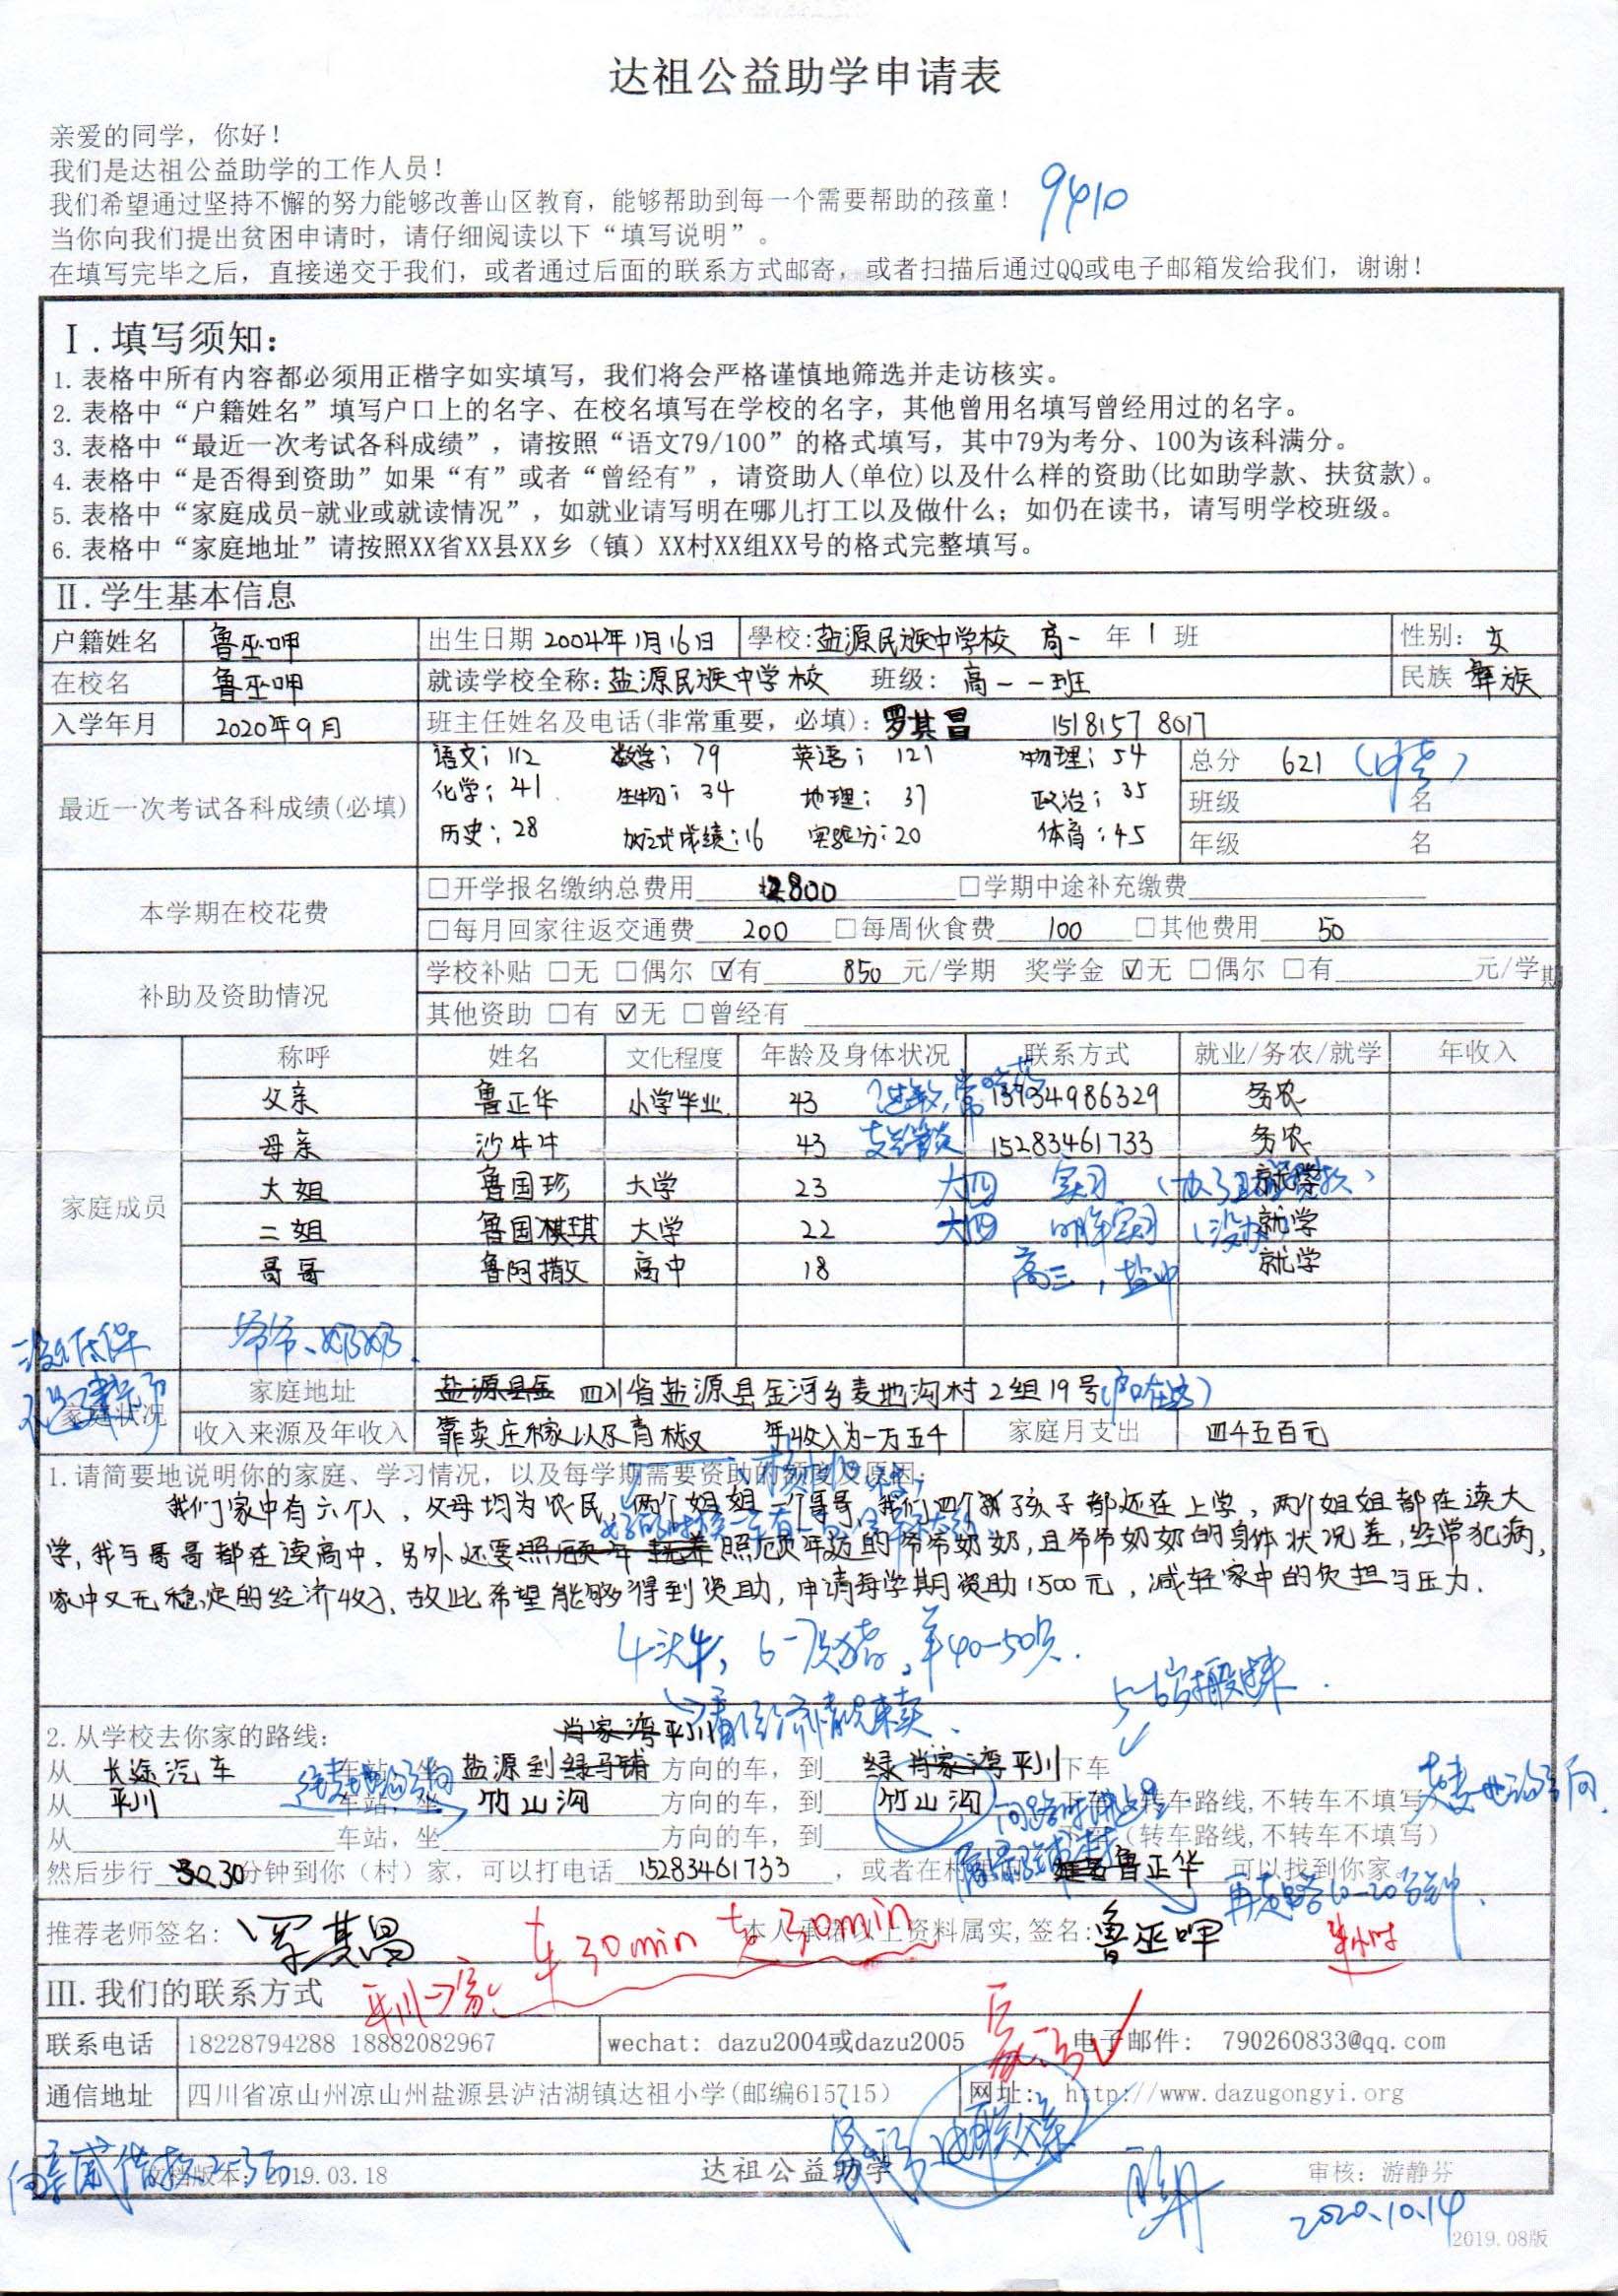 达祖公益助学申请表
亲爱的同学，你好！
我们是达祖公益助学的工作人员！
我们希望通过坚持不懈的努力能够改善山区教育，能够帮助到每一个需要帮助的孩童！
9410
当你向我们提出贫困申请时，请仔细阅读以下“填写说明”。
在填写完毕之后，直接递交于我们，或者通过后面的联系方式邮寄，或者扫描后通过QQ或电子邮箱发给我们，谢谢！
Ⅰ.填写须知：
1.表格中所有内容都必须用正楷字如实填写，我们将会严格谨慎地筛选并走访核实。
2.表格中“户籍姓名”填写户口上的名字、在校名填写在学校的名字，其他曾用名填写曾经用过的名字。
3.表格中“最近一次考试各科成绩”，请按照“语文79/100”的格式填写，其中79为考分、100为该科满分。
4.表格中“是否得到资助”如果“有”或者“曾经有”，请资助人(单位)以及什么样的资助(比如助学款、扶贫款)。
5.表格中“家庭成员-就业或就读情况”，如就业请写明在哪儿打工以及做什么；如仍在读书，请写明学校班级。
6.表格中“家庭地址”请按照XX省XX县XX乡（镇）XX村XX组XX号的格式完整填写。
Ⅱ.学生基本信息
户籍姓名 鲁巫呷 出生日期 2004年1月16日 學校:盐源民族中学校 高一 年 1 班 性别: 女
在校名 鲁巫呷 就读学校全称:盐源民族中学校 班级: 高一一班 民族 彝族
入学年月 2020年9月 班主任姓名及电话(非常重要，必填): 罗其昌 15181578017
最近一次考试各科成绩(必填)
语文：112 数学：79 英语：121 物理：54 总分 621 （中考）
化学：41 生物：34 地理：37 政治：35 班级 名
历史：28 加试成绩：16 实验分：20 体育：45 年级 名
本学期在校花费
□开学报名缴纳总费用 2800 □学期中途补充缴费
□每月回家往返交通费 200 □每周伙食费 100 □其他费用 50
补助及资助情况
学校补贴 □无 □偶尔 ☑有 850 元/学期 奖学金 ☑无 □偶尔 □有 元/学期
其他资助 □有 ☑无 □曾经有
家庭成员
称呼 姓名 文化程度 年龄及身体状况 联系方式 就业/务农/就学 年收入
父亲 鲁正华 小学毕业 43 务农
母亲 沙牛牛 43 15283461733 务农
大姐 鲁国珍 大学 23 大四 实习 就学
二姐 鲁国琪 大学 22 大四 明年实习 就学
哥哥 鲁阿撒 高中 18 高三，盐中 就学
爷爷、奶奶
没低保
家庭状况
家庭地址 盐源县金 四川省盐源县金河乡麦地沟村2组19号(户口在这)
收入来源及年收入 靠卖庄稼以及青椒 年收入为一万五千 家庭月支出 四千五百元
1.请简要地说明你的家庭、学习情况，以及每学期需要资助的额度及原因：
我们家中有六个人，父母均为农民，两个姐姐一个哥哥，我们四个孩子都还在上学，两个姐姐都在读大
学，我与哥哥都在读高中，另外还要照顾年迈的爷爷奶奶，且爷爷奶奶的身体状况差，经常犯病，
家中又无稳定的经济收入，故此希望能够得到资助，申请每学期资助1500元，减轻家中的负担与压力.
4头牛，6-7头猪，羊40-50只.
→看经济情况来卖.
2.从学校去你家的路线:
肖家湾平川
从 长途汽车 车站，坐 盐源到绿马铺 方向的车，到 绿肖家湾平川 下车
从 平川 车站，坐 竹山沟 方向的车，到 竹山沟 (转车路线,不转车不填写)
从 车站，坐 方向的车，到 下车（转车路线,不转车不填写)
然后步行 30 分钟到你（村）家，可以打电话 15283461733 ，或者在村 鲁正华 可以找到你家。
再走路10-20分钟.
推荐老师签名: 罗其昌 本人承诺以上资料属实,签名: 鲁巫呷
平川→家 车30min 走30min
Ⅲ.我们的联系方式
联系电话 18228794288 18882082967 wechat: dazu2004或dazu2005 电子邮件: 790260833@qq.com
通信地址 四川省凉山州凉山州盐源县泸沽湖镇达祖小学(邮编615715) 网址: http://www.dazugongyi.org
向亲戚借款2-3万
文档版本: 2019.03.18 达祖公益助学 审核: 游静芬
2020.10.14
2019.08版